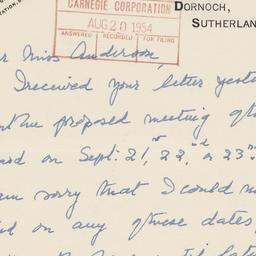 CARNEGIE CORPORATION
AUG 20 1954
ANSWERED RECORDED FOR FILING
DORNOCH,
SUTHERLAN
Miss Anderson,
I received your letter yest
the proposed meeting of
on Sept. 21st, 22nd or 23rd
sorry that I could n
on any of these dates,